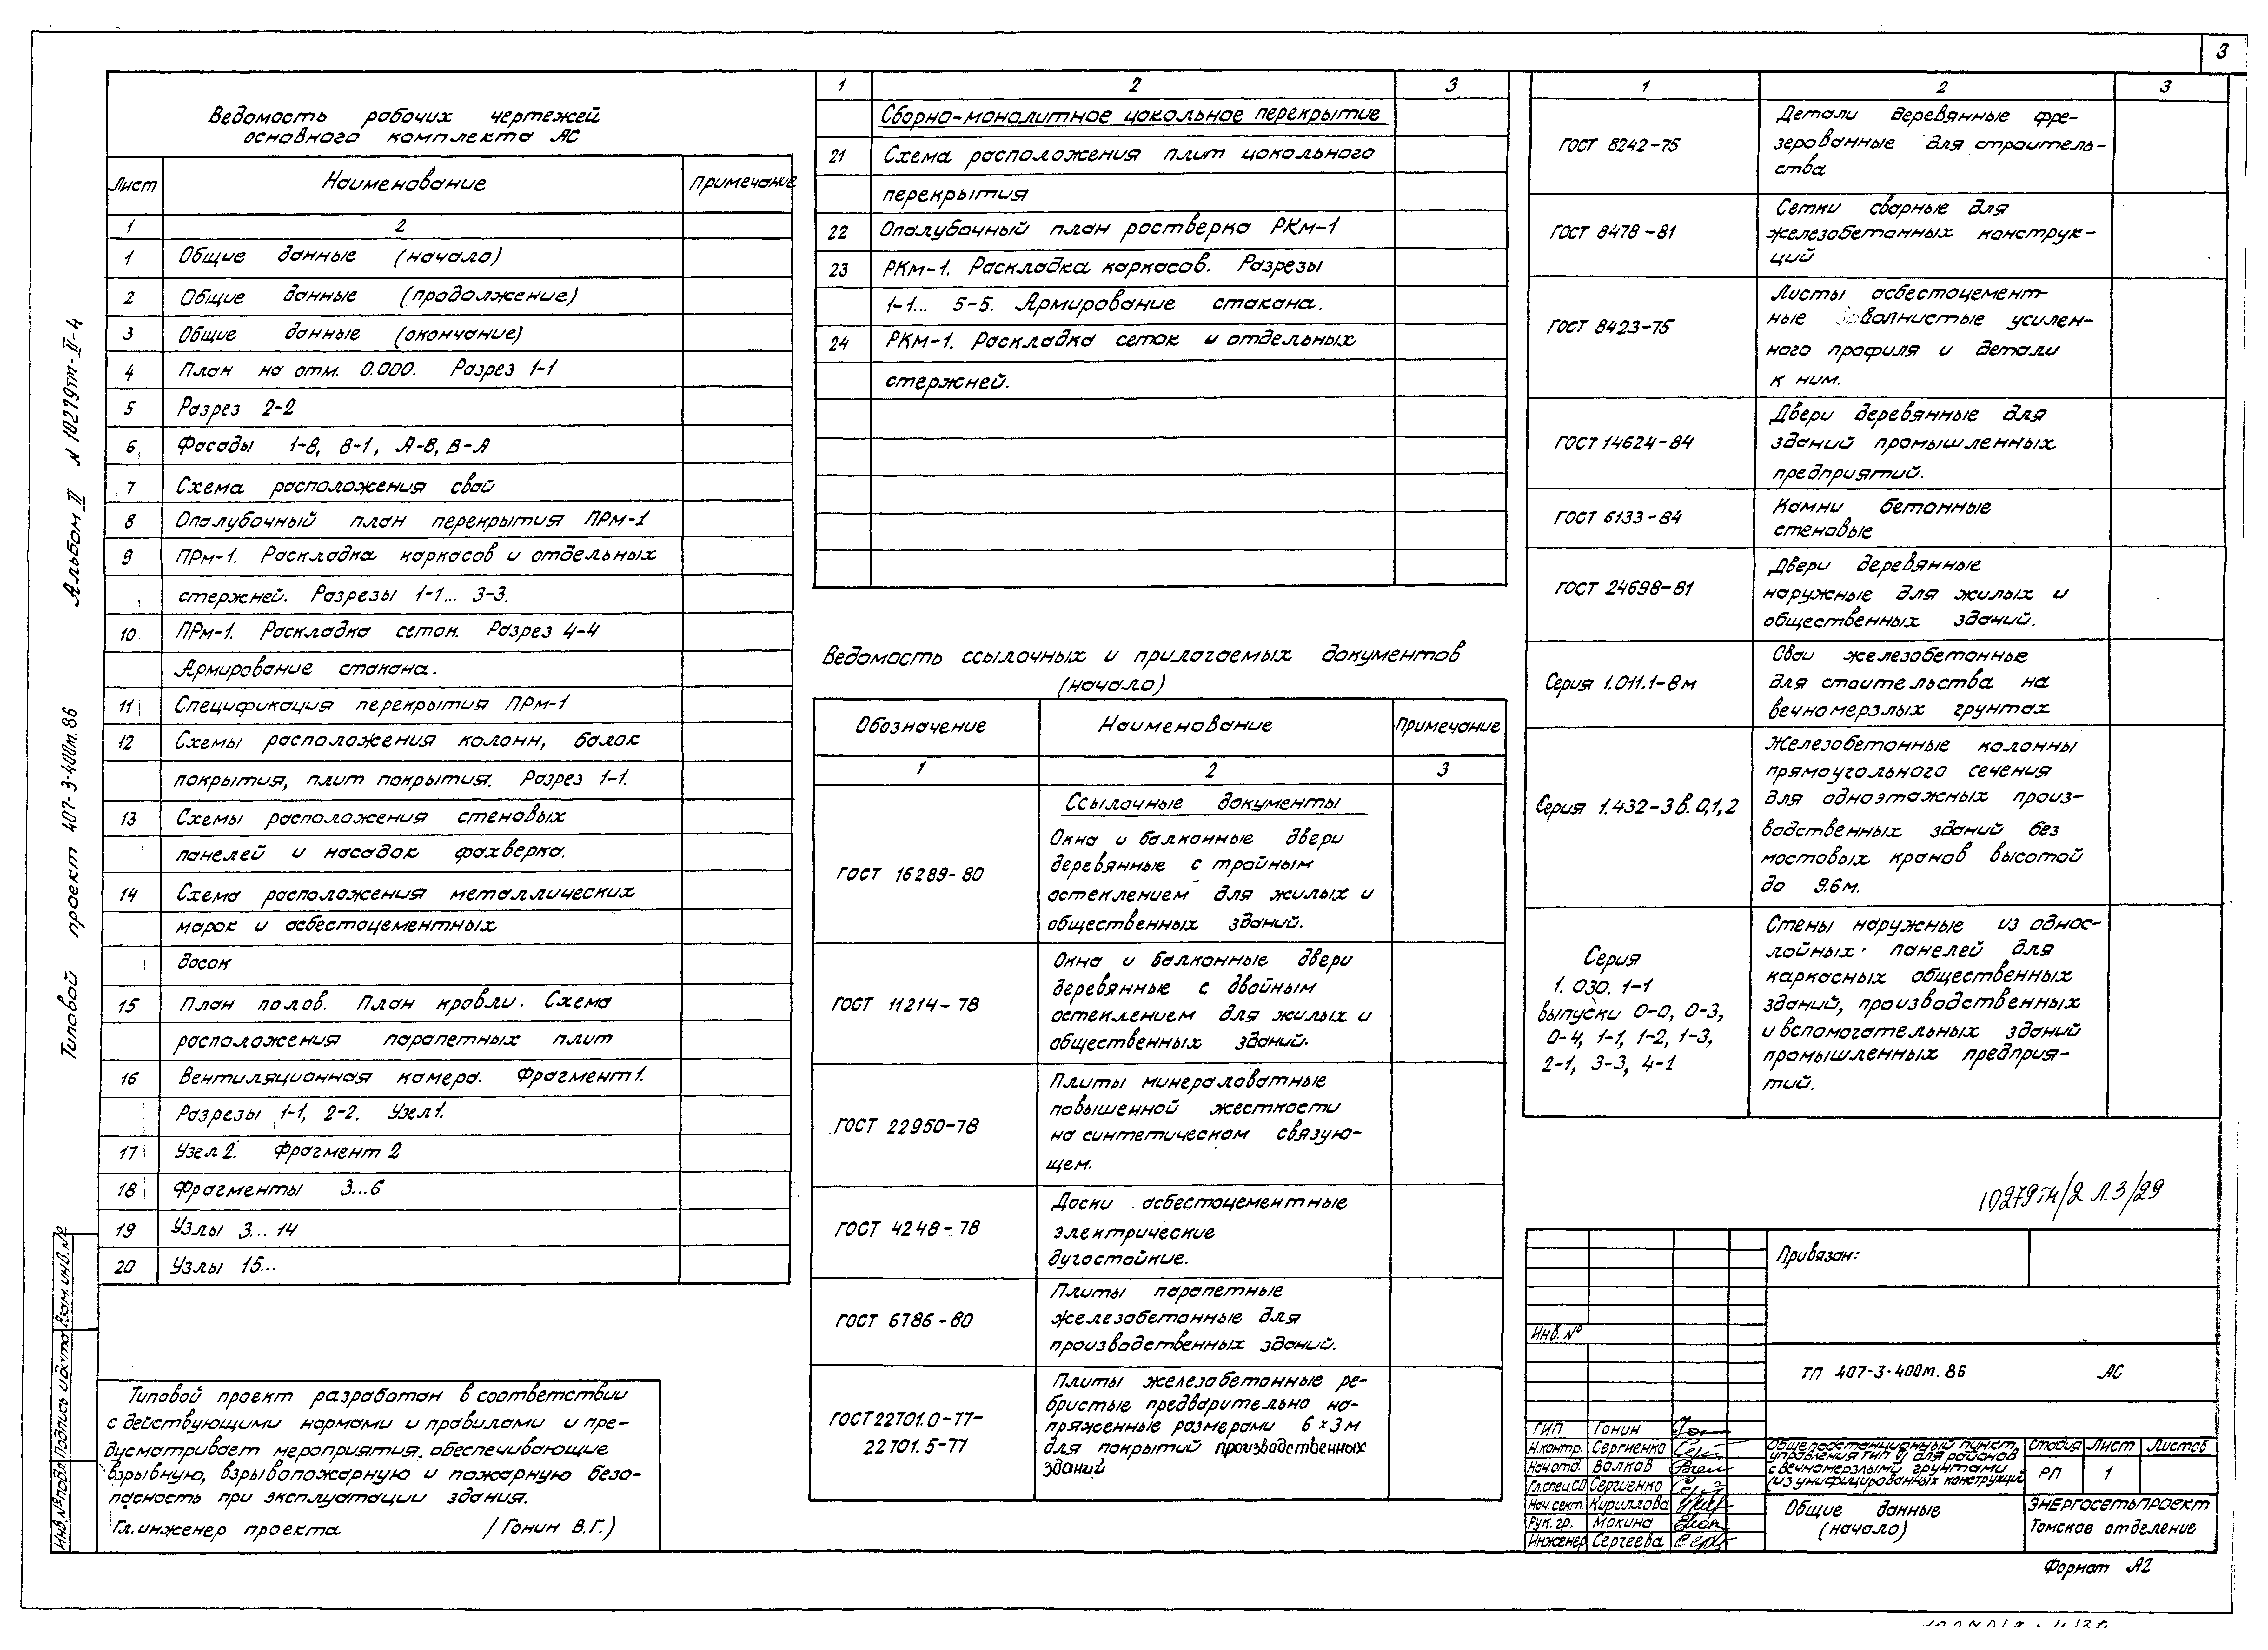 3
Ведомость рабочих чертежей
основного комплекта АС
Лист Наименование Примечание
1 2
1 Общие данные (начало)
2 Общие данные (продолжение)
3 Общие данные (окончание)
4 План на отм. 0.000. Разрез 1-1
5 Разрез 2-2
6 Фасады 1-8, 8-1, А-В, В-А
7 Схема расположения свай
8 Опалубочный план перекрытия ПРм-1
9 ПРм-1. Раскладка каркасов и отдельных
стержней. Разрезы 1-1... 3-3.
10 ПРм-1. Раскладка сеток. Разрез 4-4
Армирование стакана.
11 Спецификация перекрытия ПРм-1
12 Схемы расположения колонн, балок
покрытия, плит покрытия. Разрез 1-1.
13 Схемы расположения стеновых
панелей и насадок фахверка.
14 Схема расположения металлических
марок и асбестоцементных
досок
15 План полов. План кровли. Схема
расположения парапетных плит
16 Вентиляционная камера. Фрагмент 1.
Разрезы 1-1, 2-2. Узел 1.
17 Узел 2. Фрагмент 2
18 Фрагменты 3...6
19 Узлы 3... 14
20 Узлы 15...
Типовой проект разработан в соответствии
с действующими нормами и правилами и пре-
дусматривает мероприятия, обеспечивающие
взрывную, взрывопожарную и пожарную безо-
пасность при эксплуатации здания.
Гл. инженер проекта / Гонин В.Г.)
1 2 3
Сборно-монолитное цокольное перекрытие
21 Схема расположения плит цокольного
перекрытия
22 Опалубочный план ростверка РКм-1
23 РКм-1. Раскладка каркасов. Разрезы
1-1... 5-5. Армирование стакана.
24 РКм-1. Раскладка сеток и отдельных
стержней.
Ведомость ссылочных и прилагаемых документов
(начало)
Обозначение Наименование Примечание
1 2 3
Ссылочные документы
ГОСТ 16289-80 Окна и балконные двери
деревянные с тройным
остеклением для жилых и
общественных зданий.
ГОСТ 11214-78 Окна и балконные двери
деревянные с двойным
остеклением для жилых и
общественных зданий.
ГОСТ 22950-78 Плиты минераловатные
повышенной жесткости
на синтетическом связую-
щем.
ГОСТ 4248-78 Доски асбестоцементные
электрические
дугостойкие.
ГОСТ 6786-80 Плиты парапетные
железобетонные для
производственных зданий.
ГОСТ 22701.0-77- 22701.5-77 Плиты железобетонные ре-
бристые предварительно на-
пряженные размерами 6 х 3 м
для покрытий производственных
зданий
1 2 3
ГОСТ 8242-75 Детали деревянные фре-
зерованные для строитель-
ства
ГОСТ 8478-81 Сетки сварные для
железобетонных конструк-
ций
ГОСТ 8423-75 Листы асбестоцемент-
ные волнистые усилен-
ного профиля и детали
к ним.
ГОСТ 14624-84 Двери деревянные для
зданий промышленных
предприятий.
ГОСТ 6133-84 Камни бетонные
стеновые
ГОСТ 24698-81 Двери деревянные
наружные для жилых и
общественных зданий.
Серия 1.011.1-8м Сваи железобетонные
для стоительства на
вечномерзлых грунтах
Серия 1.432-3 в. 0,1,2 Железобетонные колонны
прямоугольного сечения
для одноэтажных произ-
водственных зданий без
мостовых кранов высотой
до 9.6 м.
Серия
1. 030. 1-1
выпуски 0-0, 0-3,
0-4, 1-1, 1-2, 1-3,
2-1, 3-3, 4-1
Стены наружные из однос-
лойных панелей для
каркасных общественных
зданий, производственных
и вспомогательных зданий
промышленных предприя-
тий.
10279тм/2 Л.3/29
Привязан:
Инв. №
ТП 407-3-400м.86 АС
ГИП Гонин
Н.контр. Сергиенко
Нач.отд. Волков
Гл.спец СО Сергиенко
Нач.сект. Кириллова
Рук. гр. Мокина
Инженер Сергеева
Общеподстанционный пункт
управления тип VI для районов
с вечномерзлыми грунтами
(из унифицированных конструкций
Стадия Лист Листов
РП 1
Общие данные
(начало)
ЭНЕРГОСЕТЬПРОЕКТ
Томское отделение
Формат А2
Типовой проект 407-3-400м.86 Альбом II N 10279тм-II-4
Инв. № подл. Подпись и дата Взам. инв. №